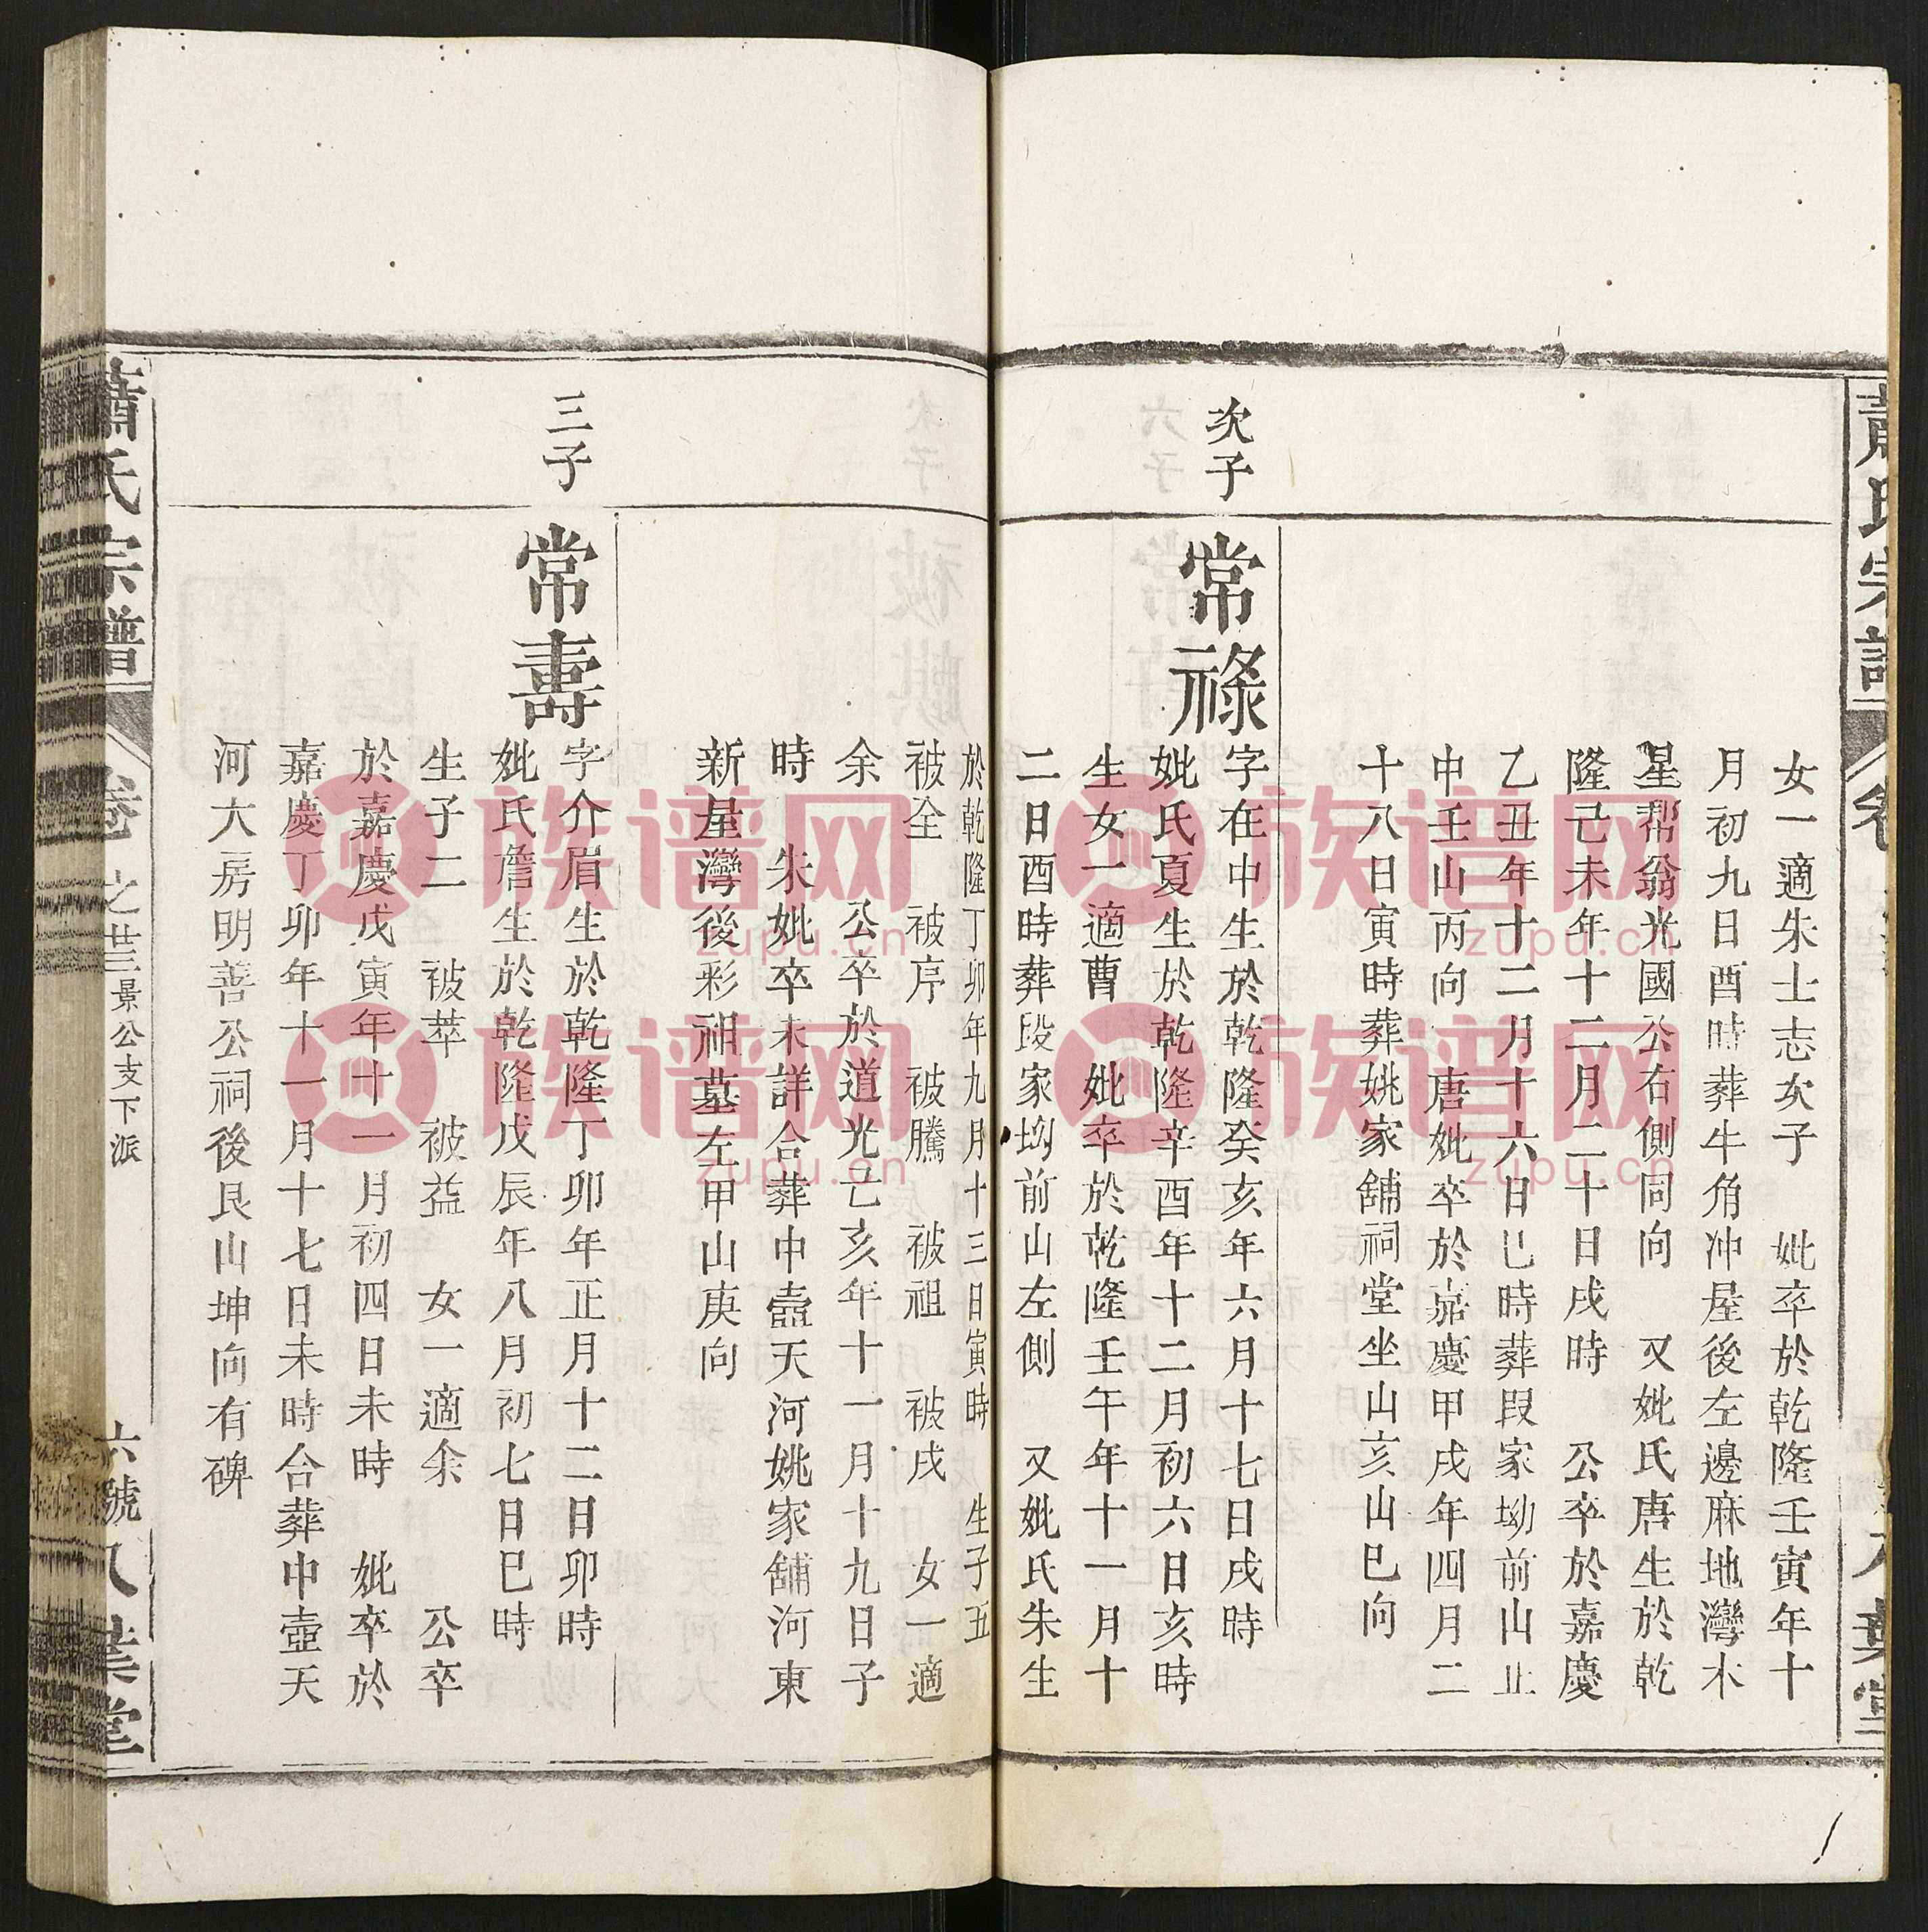 女一適朱士志次子　妣卒於乾隆壬寅年十
月初九日酉時葬牛角冲屋後左邊麻地灣木
星幇翁光國公右側同向　又妣氏唐生於乾
隆己未年十二月二十日戌時　公卒於嘉慶
乙丑年十二月十六日巳時葬段家坳前山止
中壬山丙向　唐妣卒於嘉慶甲戌年四月二
十八日寅時葬姚家舖祠堂坐山亥山巳向
次子
常祿
字在中生於乾隆癸亥年六月十七日戌時
妣氏夏生於乾隆辛酉年十二月初六日亥時
生女一適曹　妣卒於乾隆壬午年十一月十
二日酉時葬段家坳前山左側　又妣氏朱生
於乾隆丁卯年九月十三日寅時　生子五
被全　被序　被騰　被祖　被戌　女一適
余　公卒於道光己亥年十一月十九日子
時　朱妣卒未詳合葬中壼天河姚家舖河東
新屋灣後彩祖墓左甲山庚向
三子
常壽
字介眉生於乾隆丁卯年正月十二日卯時
妣氏詹生於乾隆戊辰年八月初七日巳時
生子二　被萃　被益　女一適余　公卒
於嘉慶戊寅年十一月初四日未時　妣卒於
嘉慶丁卯年十一月十七日未時合葬中壼天
河大房明善公祠後艮山坤向有碑
蕭氏宗譜
卷之廿三景公支下派
六號八葉堂
族谱网
zupu.cn
族谱网
zupu.cn
族谱网
zupu.cn
族谱网
zupu.cn